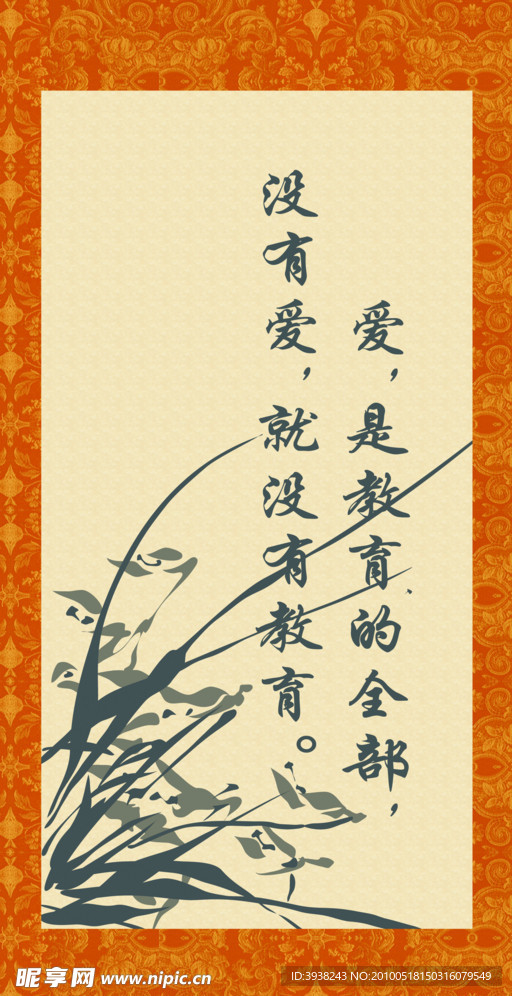 爱，是教育的全部，
没有爱，就没有教育。
昵享网 www.nipic.cn
ID:3938243 NO:20100518150316079549